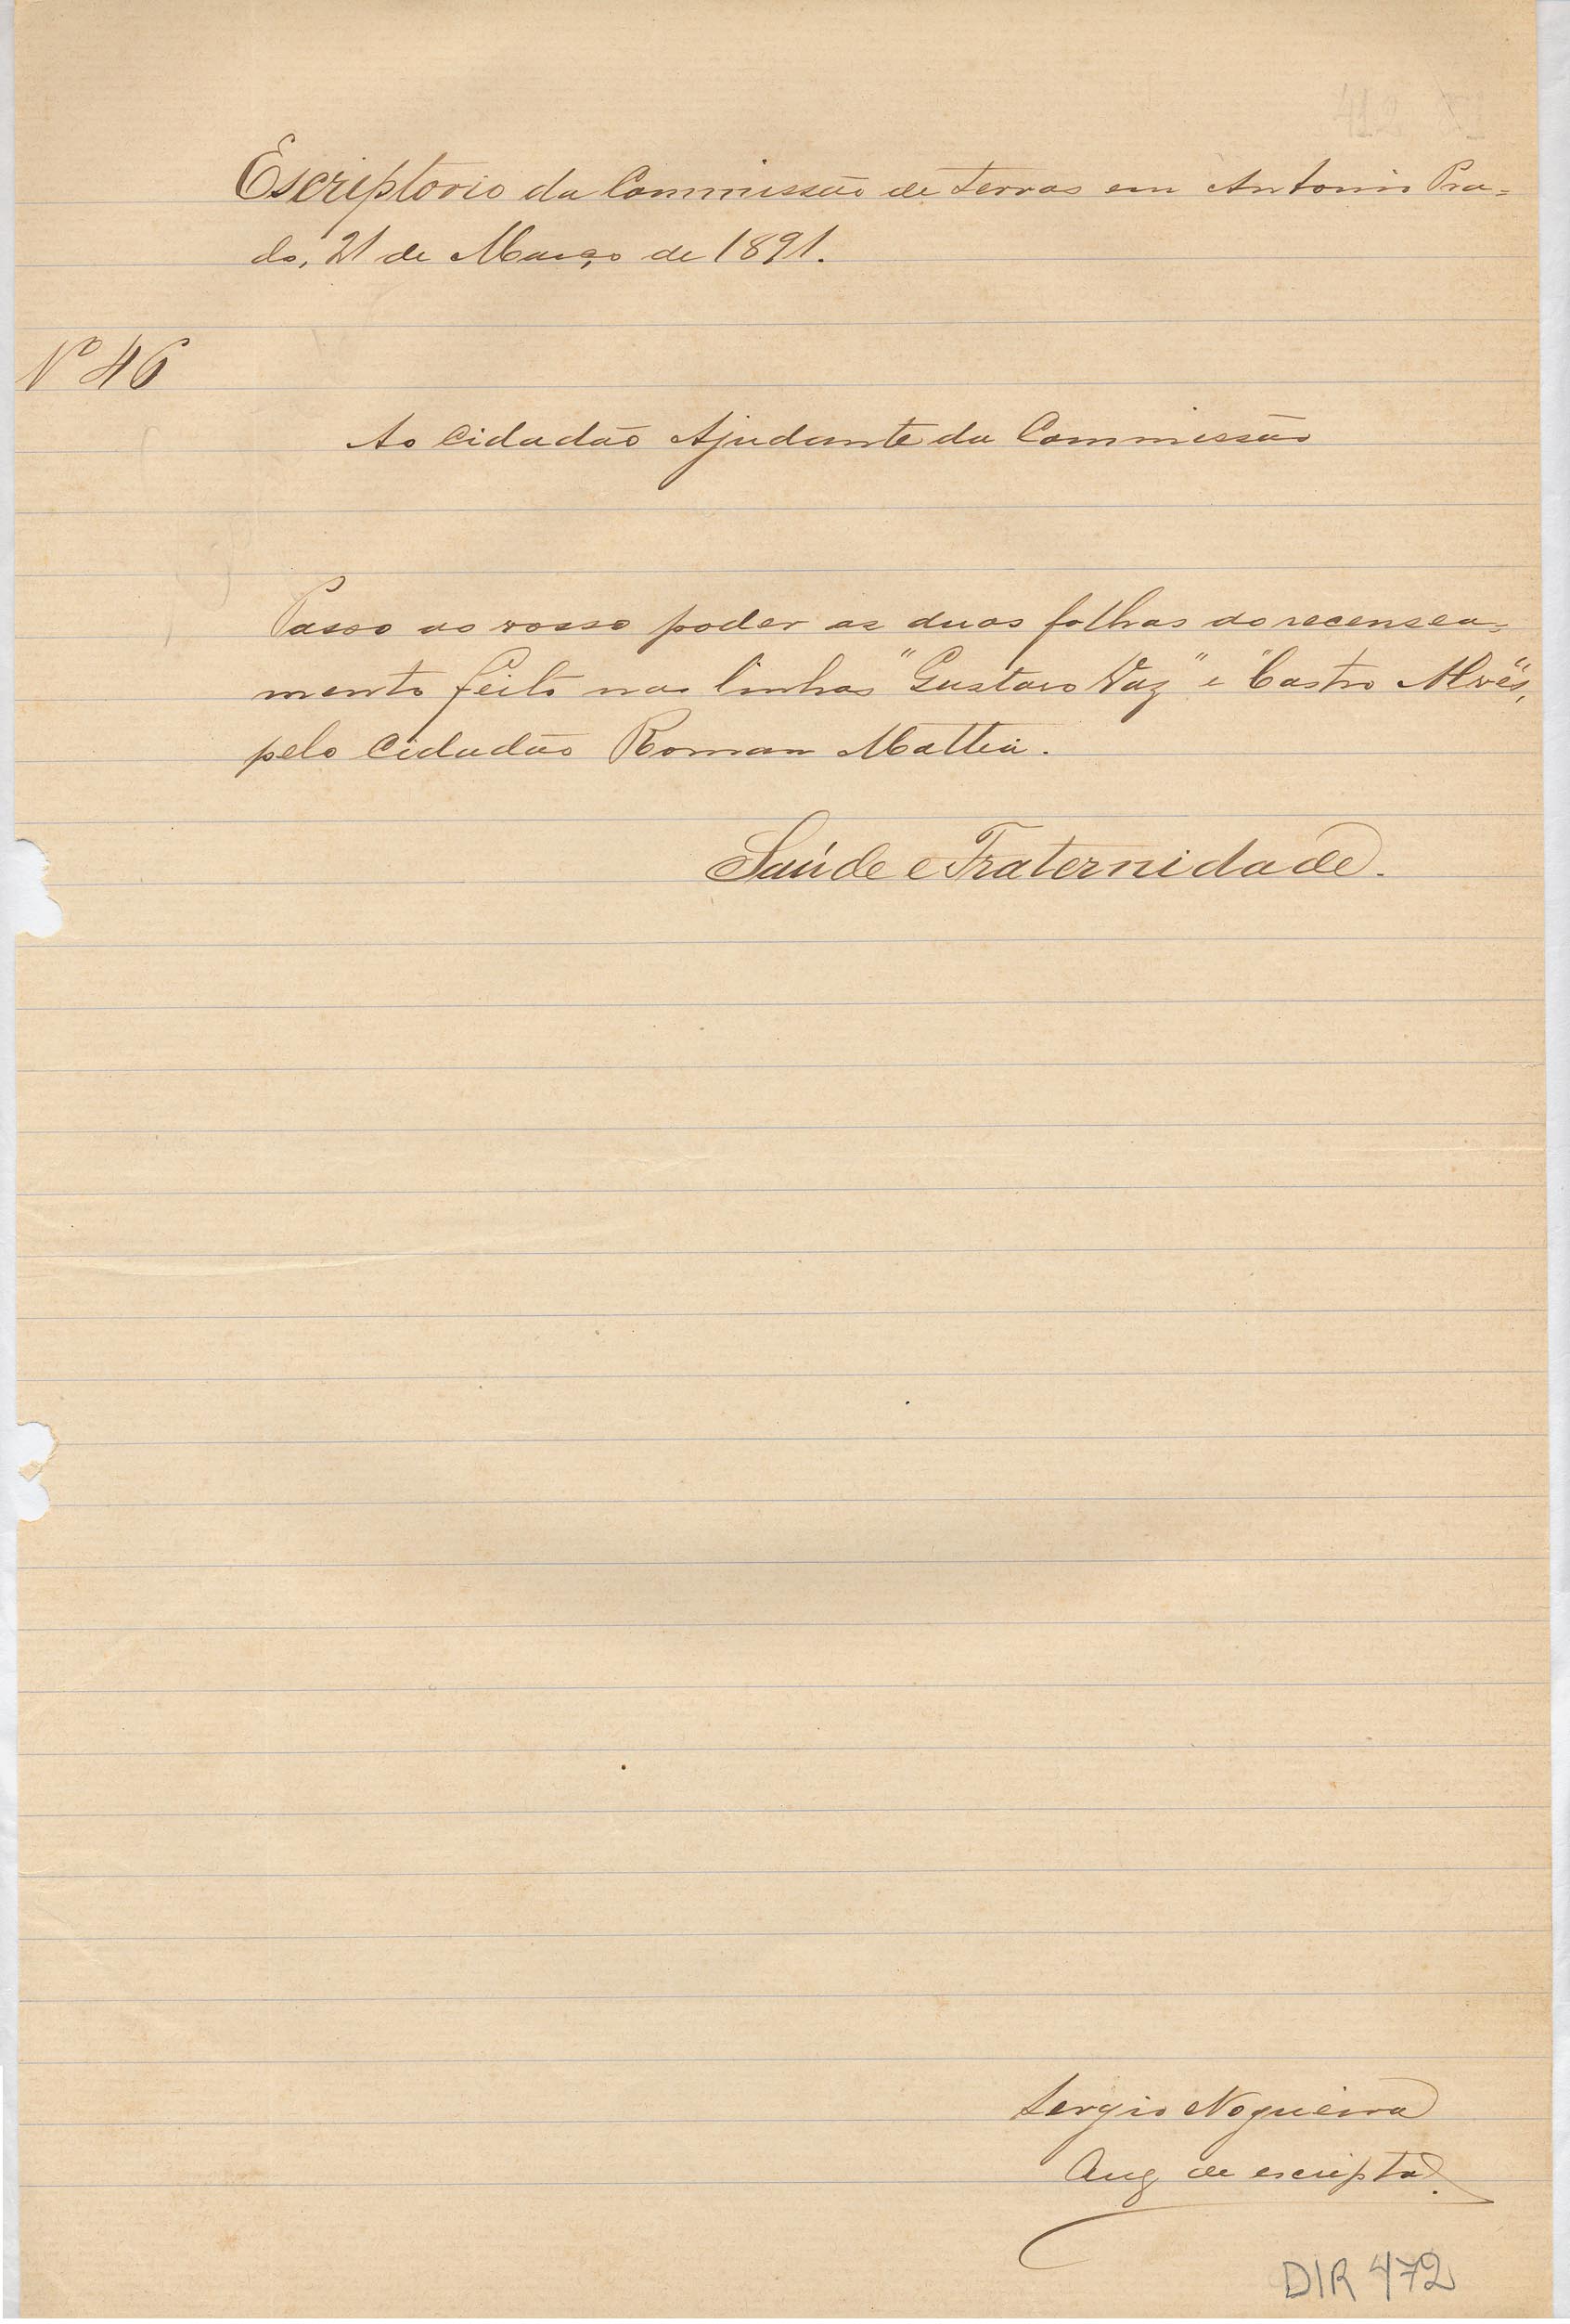 Escriptorio da Commissão de terras em Antonio Pra=
do, 21 de Março de 1891.
Nº 46
Ao Cidadão Ajudante da Commissão
Passo ao vosso poder as duas folhas do recensea=
mento feito nas linhas "Gustavo Vaz" e "Castro Alves",
pelo Cidadão Roman Mattia.
Saúde e Fraternidade.
Sergio Nogueira
Aux de escripta.
DIR 472